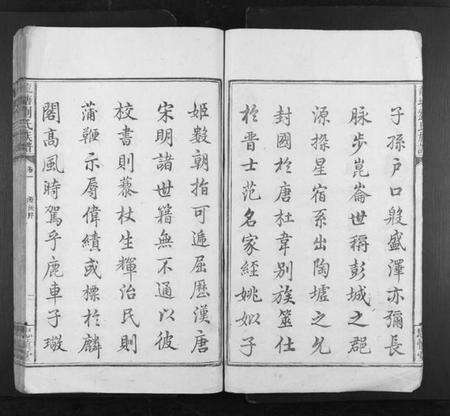 子孫戶口殷盛澤亦彌長
脉步崑崙世稱彭城之郡
源探星宿系出陶墟之允
封國於唐杜韋別族筮仕
於晋士范名家經姚姒子
姬數朝指可遞屈歷漢唐
宋明諸世籍無不通以彼
校書則藜杖生輝治民則
蒲鞭示辱偉績或標於麟
閣高風時駕乎鹿車子璥
劉氏族譜
卷一